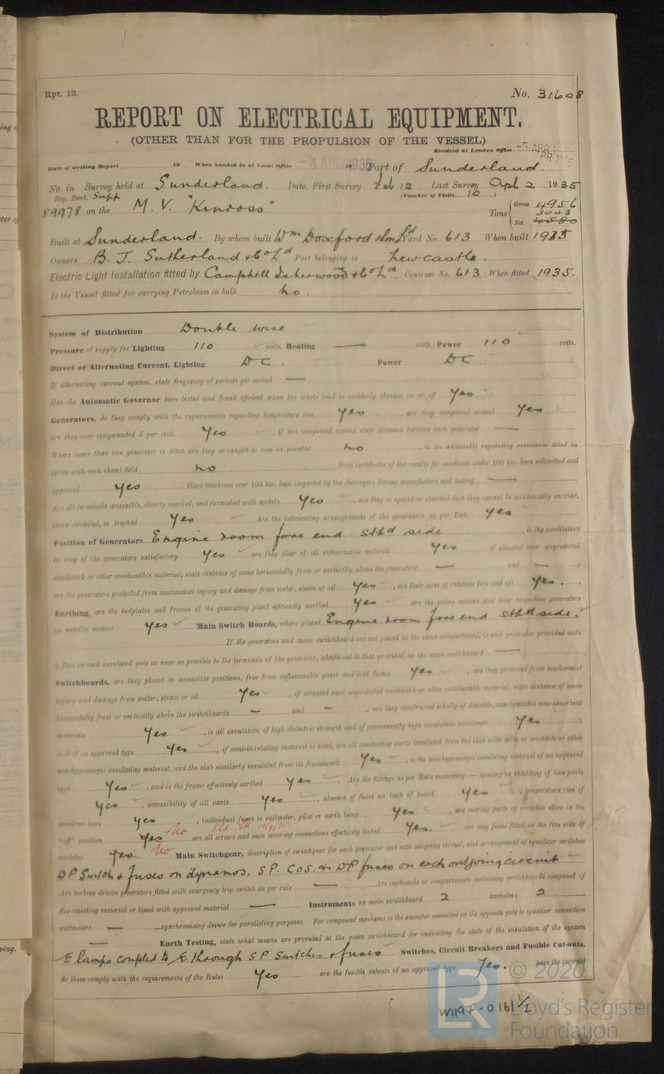 Rpt. 13.
No. 31608
REPORT ON ELECTRICAL EQUIPMENT.
(OTHER THAN FOR THE PROPULSION OF THE VESSEL)
Received at London Office
Date of writing Report 19 When handed in at Local Office -4 APR 1935 Port of Sunderland.
No. in Survey held at Sunderland. Date, First Survey Feb 12 Last Survey Apl 2 1935
Reg. Book. Supp (Number of Visits 10)
89978 on the M. V. "Kinross" Tons Gross 4956
Net
Built at Sunderland. By whom built Wm Doxford & Sons Ld Yard No. 613 When built 1935
Owners B. J. Sutherland & Co Ld Port belonging to Newcastle.
Electric Light Installation fitted by Campbell Isherwood & Co Ld. Contract No. 613 When fitted 1935.
Is the Vessel fitted for carrying Petroleum in bulk No.
System of Distribution Double wire
Pressure of supply for Lighting 110 volts, Heating — volts, Power 110 volts.
Direct or Alternating Current, Lighting DC. Power DC
If alternating current system, state frequency of periods per second —
Has the Automatic Governor been tested and found efficient when the whole load is suddenly thrown on or off Yes
Generators, do they comply with the requirements regarding temperature rise Yes, are they compound wound Yes
are they over compounded 5 per cent. Yes, if not compound wound state distance between each generator —
Where more than one generator is fitted are they arranged to run in parallel No, is an adjustable regulating resistance fitted in
series with each shunt field No Have certificates of test results for machines under 100 kw. been submitted and
approved Yes Have machines over 100 kw. been inspected by the Surveyors during manufacture and testing, —
Are all terminals accessible, clearly marked, and furnished with sockets Yes, are they so spaced or shielded that they cannot be accidentally earthed,
short circuited, or touched Yes Are the lubricating arrangements of the generators as per Rule Yes
Position of Generators Engine room fore end stbd side, is the ventilation
in way of the generators satisfactory Yes are they clear of all inflammable material Yes if situated near unprotected
woodwork or other combustible material, state distance of same horizontally from or vertically above the generators — and —
are the generators protected from mechanical injury and damage from water, steam or oil Yes, are their axes of rotation fore and aft Yes.
Earthing, are the bedplates and frames of the generating plant efficiently earthed Yes are the prime movers and their respective generators
in metallic contact Yes Main Switch Boards, where placed Engine room fore end stbd side.
If the generators and main switchboard are not placed in the same compartment, is each generator provided with
a fuse on each insulated pole as near as possible to the terminals of the generator, additional to that provided on the main switchboard —
Switchboards, are they placed in accessible positions, free from inflammable gases and acid fumes Yes, are they protected from mechanical
injury and damage from water, steam or oil Yes, if situated near unprotected woodwork or other combustible material, state distance of same
horizontally from or vertically above the switchboards — and —, are they constructed wholly of durable, non-ignitable non-absorbent
materials Yes, is all insulation of high dielectric strength and of permanently high insulation resistance Yes
is it of an approved type Yes, if semi-insulating material is used, are all conducting parts insulated from the slab with mica or micanite or other
non-hygroscopic insulating material, and the slab similarly insulated from its framework Yes, is the non-hygroscopic insulating material of an approved
type Yes, and is the frame effectively earthed Yes. Are the fittings as per Rule regarding:— spacing or shielding of live parts
Yes, accessibility of all parts Yes, absence of fuses on back of board Yes, temperature rise of
omnibus bars Yes, individual fuses to voltmeter, pilot or earth lamp Yes, are moving parts of switches alive in the
"off" position No are all screws and nuts securing connections effectively locked Yes. are any fuses fitted on the live side of
switches No Main Switchgear, description of switchgear for each generator and each outgoing circuit, and arrangement of equaliser switches
DP Switch & fuses on dynamos. SP. COS. & DP fuses on each outgoing circuit
Are turbine driven generators fitted with emergency trip switch as per rule — Are cupboards or compartments containing switchboards composed of
fire-resisting material or lined with approved material — Instruments on main switchboard 2 ammeters 2
voltmeters — synchronising device for paralleling purposes. For compound machines is the ammeter connected on the opposite pole to equaliser connection
— Earth Testing, state what means are provided at the main switchboard for indicating the state of the insulation of the system
E lamps coupled to E through SP Switches & fuses Switches, Circuit Breakers and Fusible Cut-outs,
do these comply with the requirements of the Rules Yes are the fusible cutouts of an approved type Yes.
© 2020
Lloyd's Register
Foundation
W1197-0161 1/2